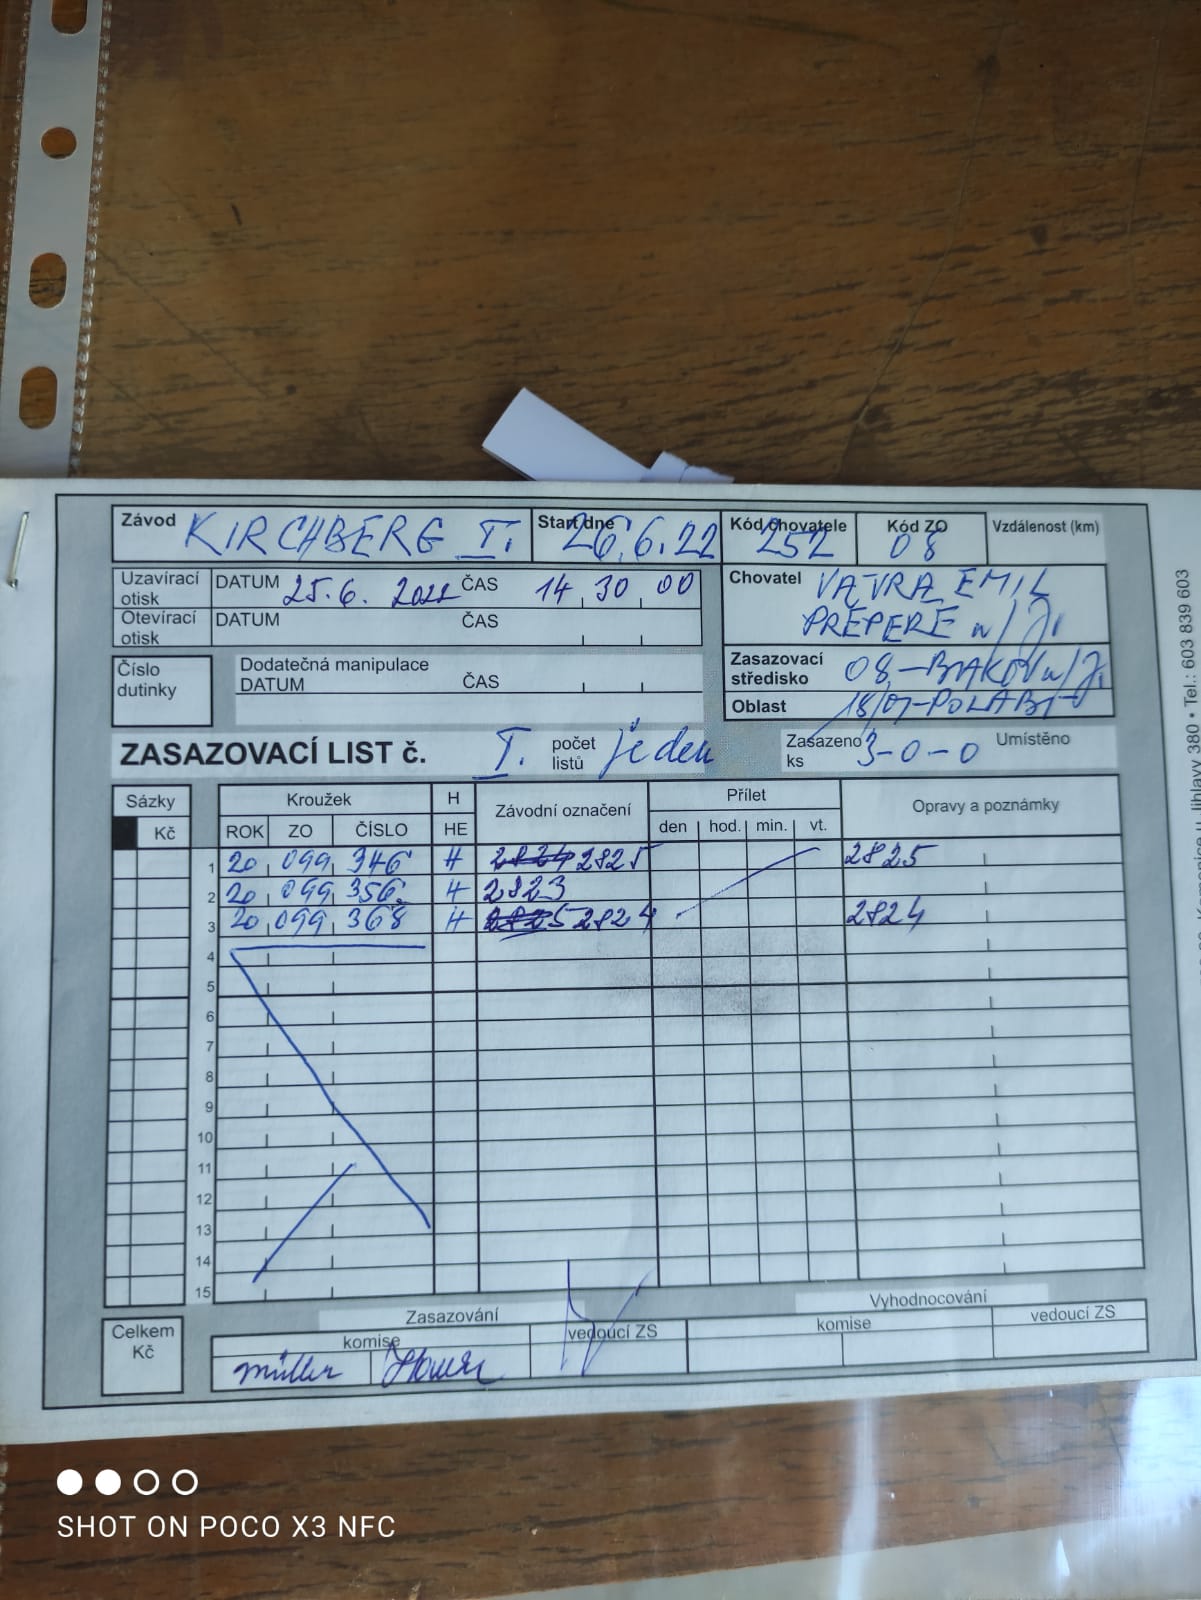 Závod KIRCHBERG I. Start dne 26.6.22 Kód chovatele 252 Kód ZO 08 Vzdálenost (km)
Uzavírací otisk DATUM 25.6. 2022 ČAS 14 30 00
Otevírací otisk DATUM ČAS
Chovatel VÁVRA EMIL
PŘEPEŘE n/Ji
Číslo dutinky Dodatečná manipulace
DATUM ČAS
Zasazovací středisko 08-BAKOV n/Ji
Oblast 18/07-POLABÍ
ZASAZOVACÍ LIST č. I. počet listů jeden Zasazeno ks 3-0-0 Umístěno
Sázky Kroužek H Závodní označení Přílet Opravy a poznámky
Kč ROK ZO ČÍSLO HE den hod. min. vt.
1 20 099 346 H 2824 2825 2825
2 20 099 356 H 2823
3 20 099 368 H 2825 2824 2824
4
5
6
7
8
9
10
11
12
13
14
15
Celkem Kč
Zasazování Vyhodnocování
komise vedoucí ZS komise vedoucí ZS
Müller
Jihlavy 380 • Tel.: 603 839 603
SHOT ON POCO X3 NFC